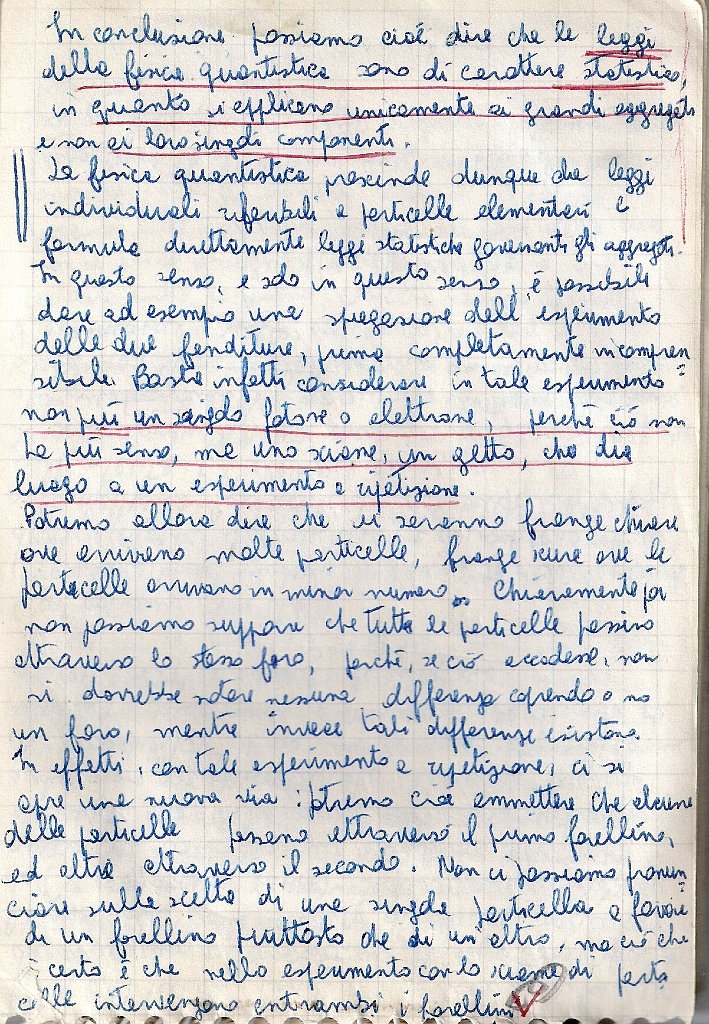 In conclusione possiamo cioé dire che le leggi
della fisica quantistica sono di carattere statistico,
in quanto si applicano unicamente ai grandi aggregati
e non ai loro singoli componenti.
La fisica quantistica prescinde dunque da leggi
individuali riferibili a particelle elementari e
formula direttamente leggi statistiche governanti gli aggregati.
In questo senso, e solo in questo senso, é possibile
dare ad esempio una spiegazione dell'esperimento
delle due fenditure, prima completamente incompren
sibile. Basta infatti considerare in tale esperimento
non piú un singolo fotone o elettrone, perché ció non
ha piú senso, ma uno sciame, un getto, che dia
luogo a un esperimento a ripetizione.
Potremo allora dire che vi saranno frange chiare
ove arrivano molte particelle, frange scure ove le
particelle arrivano in minor numero. Chiaramente poi
non possiamo supporre che tutte le particelle passino
attraverso lo stesso foro, perché, se ció accadesse, non
si dovrebbe notare nessuna differenza coprendo o no
un foro, mentre invece tali differenze esistono.
In effetti, con tale esperimento a ripetizione, ci si
apre una nuova via: potremo cioé ammettere che alcune
delle particelle passano attraverso il primo forellino,
ed altre attraverso il secondo. Non ci possiamo pronun
ciare sulla scelta di una singola particella a favore
di un forellino piuttosto che di un altro, ma ció che
é certo é che nello esperimento con lo sciame di parti
celle intervengono entrambi i forellini